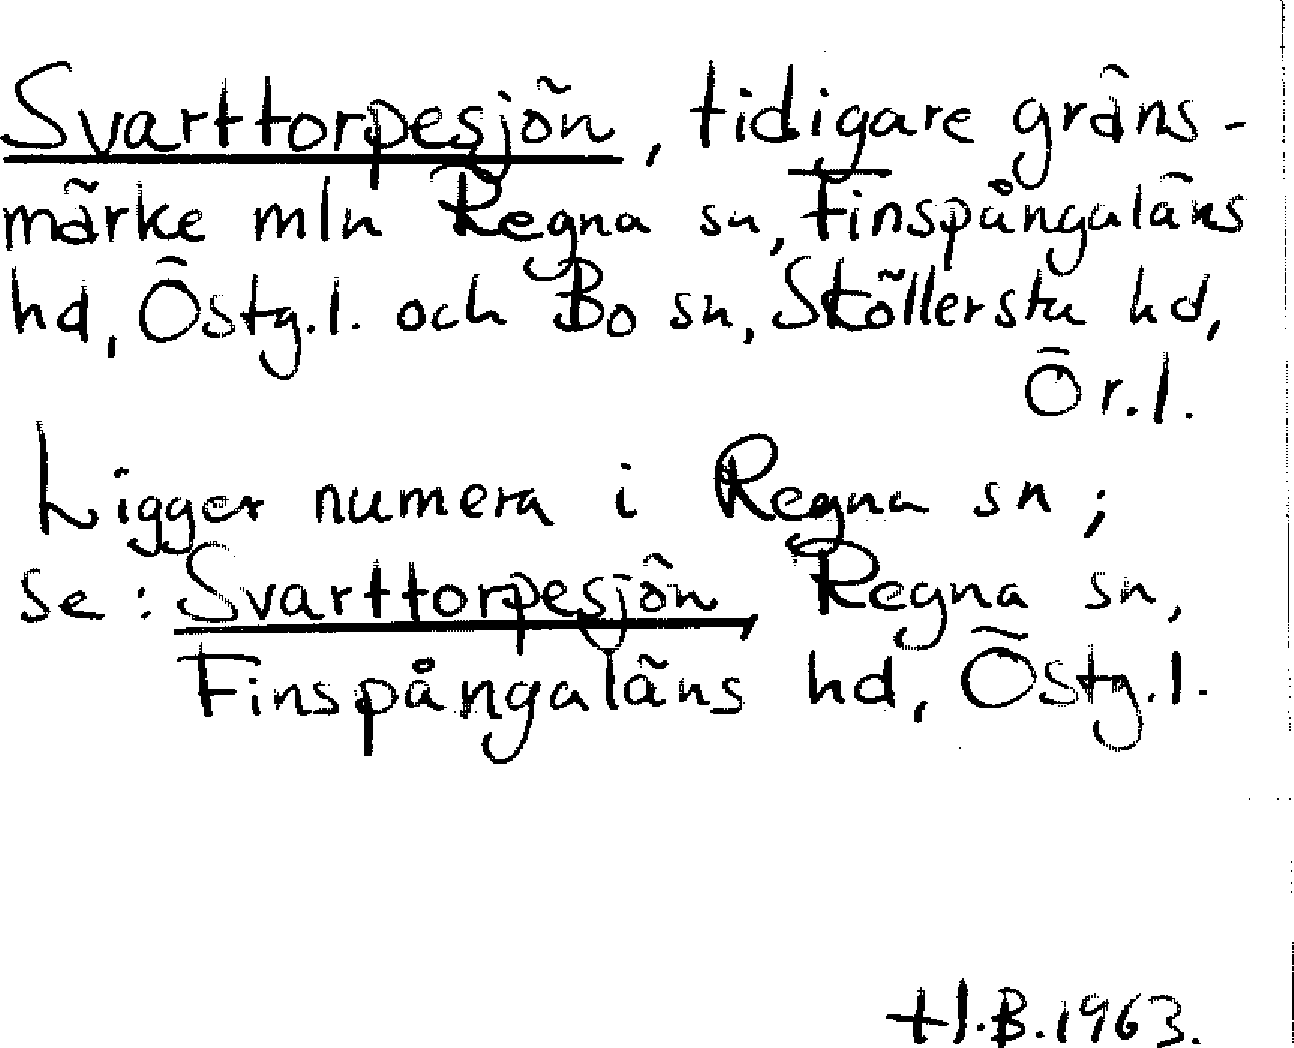 Svarttorpesjön, tidigare gräns-
märke mln Regna sn, Finspångaläns
hd, Östg.l. och Bo sn, Sköllersta hd,
Ör.l.
Ligger numera i Regna sn;
se: Svarttorpesjön, Regna sn,
Finspångaläns hd, Östg.l.
H.B. 1963.